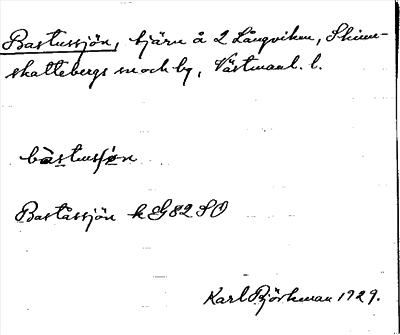 Bastussjön, tjärn å 2 Långviken, Skinn-
skattebergs sn och by, Västmanl. l.
bàstusʃøn
Baståssjön k G 82 SO
Karl Björkman 1929.